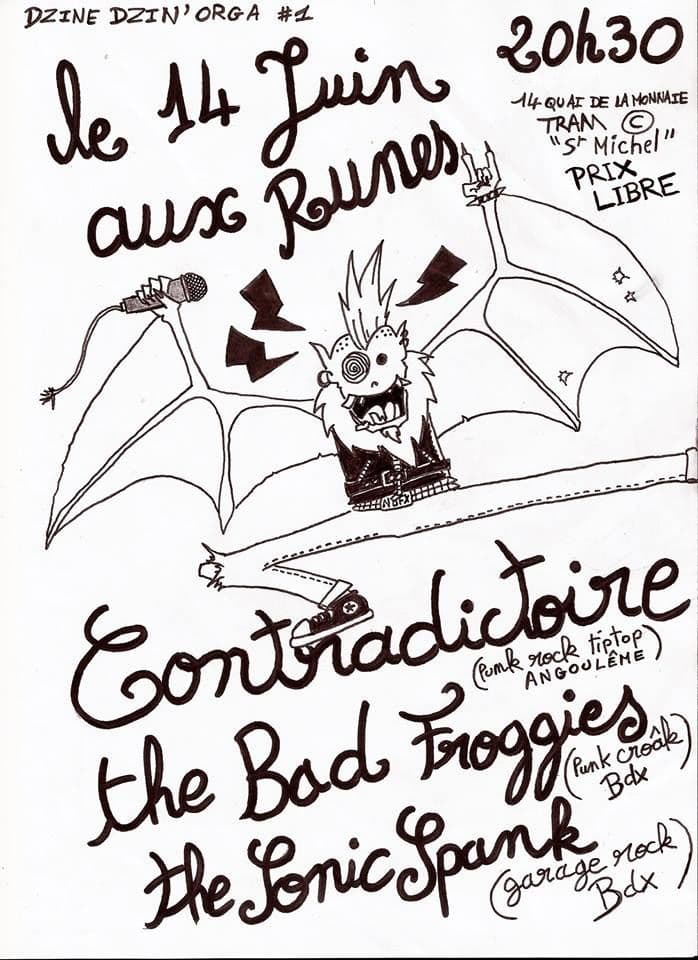 DZINE DZIN'ORGA #1
20h30
le 14 Juin
aux Runes
14 QUAI DE LA MONNAIE
TRAM ©
"St Michel"
PRIX
LIBRE
NOFX
Contradictoire
(Punk rock tiptop
ANGOULÊME)
the Bad Froggies
(Punk croâk)
Bdx
the Sonic Spank
(garage rock
Bdx)